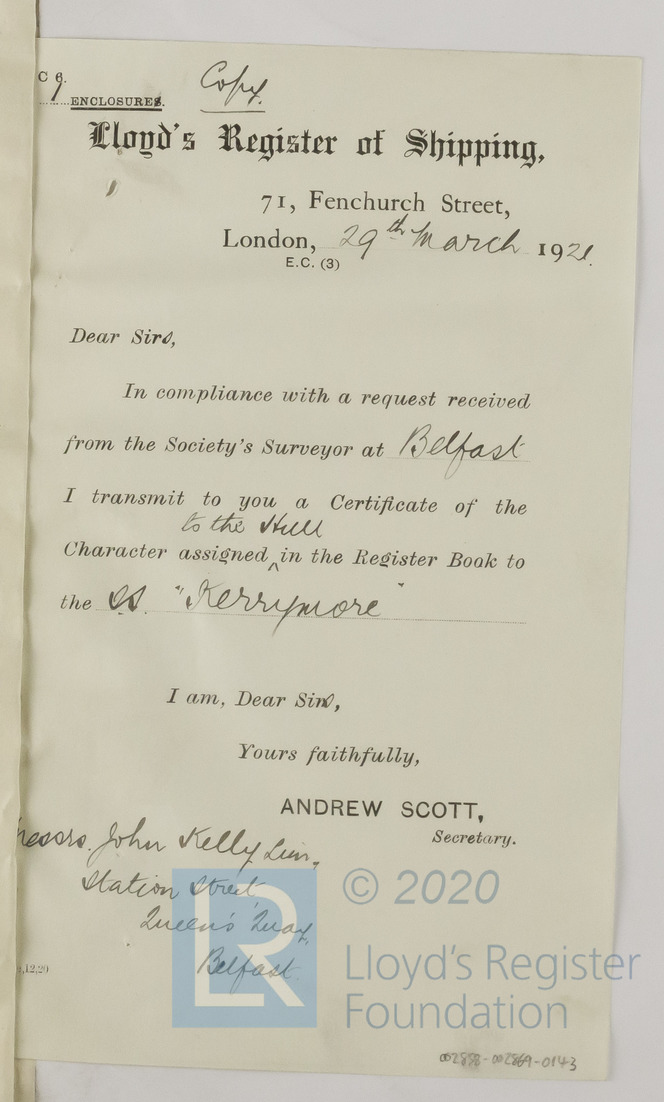 C 6.
1 ENCLOSURES.
Copy.
Lloyd's Register of Shipping,
71, Fenchurch Street,
London, 29th March 1921.
E.C. (3)
Dear Sirs,
In compliance with a request received
from the Society's Surveyor at Belfast
I transmit to you a Certificate of the
to the Hull
Character assigned ‸ in the Register Book to
the S.S. "Kerrymore"
I am, Dear Sirs,
Yours faithfully,
ANDREW SCOTT,
Secretary.
Messrs. John Kelly Lim.,
Station Street,
Queen's Quay,
Belfast.
,12,20
LR
© 2020
Lloyd's Register
Foundation
002858-002869-0143